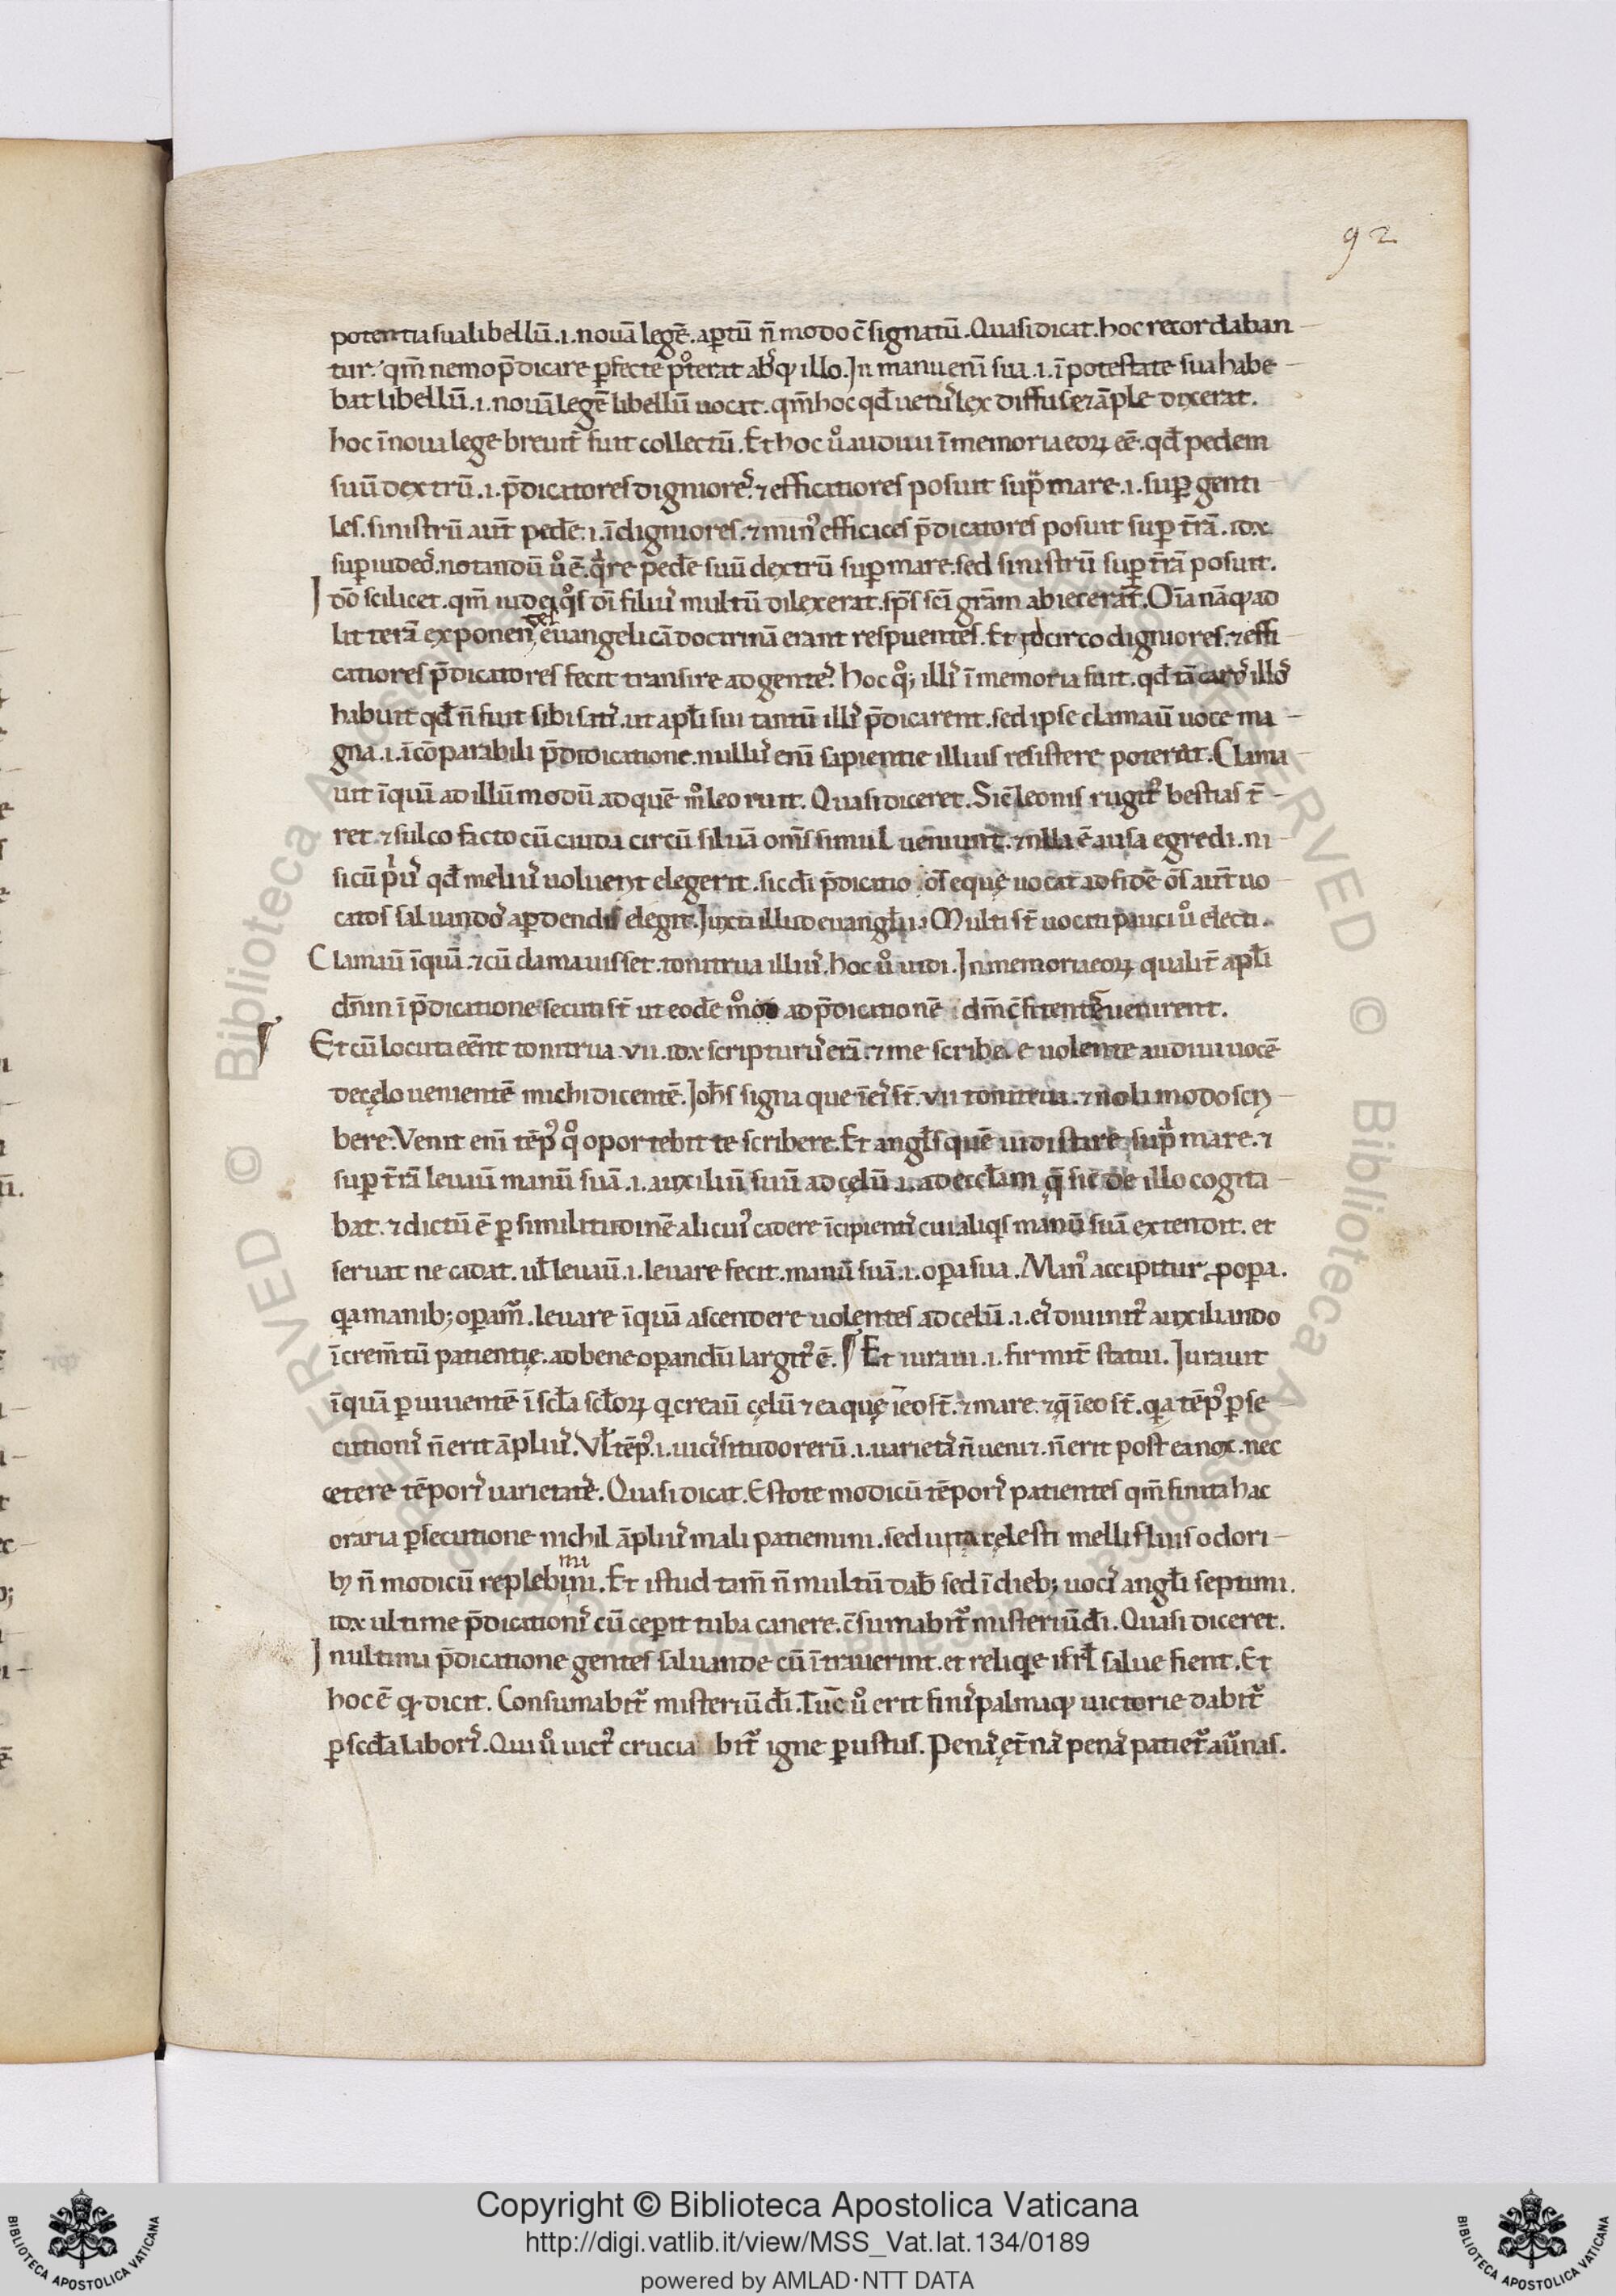 92
potentia sua libellū .i. nouā legē. aꝑtū n̄ modo c̄signatū. Quasi dicat. hoc recordaban
tur. qm̄ nemo p̄dicare ꝑfecte poterat absq; illo. In manu eni sua .i. ī potestate sua habe
bat libellū .i. nouā legē libellū uocat. qm̄ hoc qd̄ uetus lex diffuse ⁊ āple dixerat.
hoc ī noua lege breuit̄ fuit collectū. Et hoc uͦ audiui ī memoria eoꝝ eē. qd̄ pedem
suū dextrū .i. p̄dicatores digniores ⁊ efficatiores posuit supra mare .i. suꝑ genti
les. sinistrū aut̄ pedē .i. īdigniores. ⁊ minꝰ efficaces p̄dicatores posuit suꝑ t̄rā. idē
suꝑ iudeos. notandū uͦ ē. quare pedē suū dextrū suꝑ mare. sed sinistrū suꝑ t̄rā posuit.
Ideo scilicet. qm̄ iudei quos dī filius multū dilexerat. sps̄ sci grām abiecerāt. Oīa nāq; ad
litterā exponendes euangelicā doctrinā erant respuentes. Et idcirco digniores. ⁊ effi
catiores p̄dicatores fecit transire ad gentes. Hoc qͦq; illis ī memoria fuit. qd̄ tā caros illos
habuit qd̄ n̄ fuit sibi satis. ut apl̄i sui tantū illis p̄dicarent. sed ipse clamauit uoce ma
gna .i. īcōparabili p̄didicatione. nullus eni sapientie illius resistere poterat. Clama
uit īquā ad illū modū ad quē mͦ leo ruit. Quasi diceret. Sic leonis rugitus bestias t̄
ret. ⁊ sulco facto cū cauda circū siluā oms̄ simul ueniunt. ⁊ nlla ē ausa egredi. ni
si cū prius qd̄ melius uoluerit elegerit. sic dī p̄dicatio os̄ eque uocat ad fidē os̄ aut̄ uo
catos saluandos a ꝑdendis elegit. Juxta illud euangl̄ii. Multi st̄ uocati pauci uͦ electi.
Clamauit īquā. ⁊ cū clamauisset. tonitrua illius. hoc uͦ uidi. In memoria eoꝝ qualit̄ apl̄i
dn̄m ī p̄dicatione secuti st̄ ut eodē mͦdo ad p̄dicationē dm̄ c̄fitentes uenirent.
¶ Et cū locuta eēnt tonitrua .vii. idē scripturus erā. ⁊ me scribere uolente audiui uocē
de celo uenientē michi dicentē. Joh̄s signa que īeis st̄ .vii tonitrua. ⁊ noli modo scri
bere. Venit eni tēpꝰ qͦ oportebit te scribere. Et angl̄s quē uidi stare supra mare. ⁊
suꝑ t̄rā leuauit manū suā .i. auxiliū suū ad celū .i. ad eccl̄am q̄ sic de illo cogita
bat. ⁊ dictū ē ꝑ similitudinē alicuiꝰ cadere īcipientis cui aliqis manū suā extendit. et
seruat ne cadat. ul̄ leuauit .i. leuare fecit. manū suā .i. oꝑa sua. Manꝰ accipitur ꝓ oꝑa.
qa manib; oꝑamur. leuare īquā ascendere uolentes ad celū .i. eis diuinitus auxiliando
īcrem̄tū patientie. ad bene oꝑandū largitus ē. ¶ Et iurauit .i. firmit̄ statui. Jurauit
īquā ꝑ uiuentē ī scl̄a scl̄oꝝ qi creauit celū ⁊ ea que īeo st̄. ⁊ mare. ⁊ q̄ īeo st̄. qa tēpꝰ ꝑse
cutionis n̄ erit āplius. Ul̄ tēpꝰ .i. uicissitudo rerū .i. uarietas n̄ ueniet. n̄ erit post ea nox. nec
cetere tēporis uarietates. Quasi dicat. Estote modicū tēporis patientes qm̄ finita hac
oraria ꝑsecutione nichil āplius mali patiemini. sed uita celesti mellifluis odori
b; n̄ modicū replebimini. Et istud tam̄ n̄ multū dab̄ sed ī dieb; uocis angl̄i septimi.
idē ultime p̄dicationis cū ceperit tuba canere. c̄sumabitur misteriū dī. Quasi diceret.
In ultima p̄dicatione gentes saluande cū ītrauerint. et reliqe isrl̄ salue fient. Et
hoc ē qd dicit. Consumabitur misteriū dī. Tūc uͦ erit finis palmaq; uictorie dabitur
ꝑ secl̄a laboris. Qui uͦ uictꝰ cruciabitur igne ꝑustus. Penas et̄nas penas patietur auernas.
Copyright © Biblioteca Apostolica Vaticana
http://digi.vatlib.it/view/MSS_Vat.lat.134/0189
powered by AMLAD·NTT DATA
BIBLIOTECA APOSTOLICA VATICANA
BIBLIOTECA APOSTOLICA VATICANA